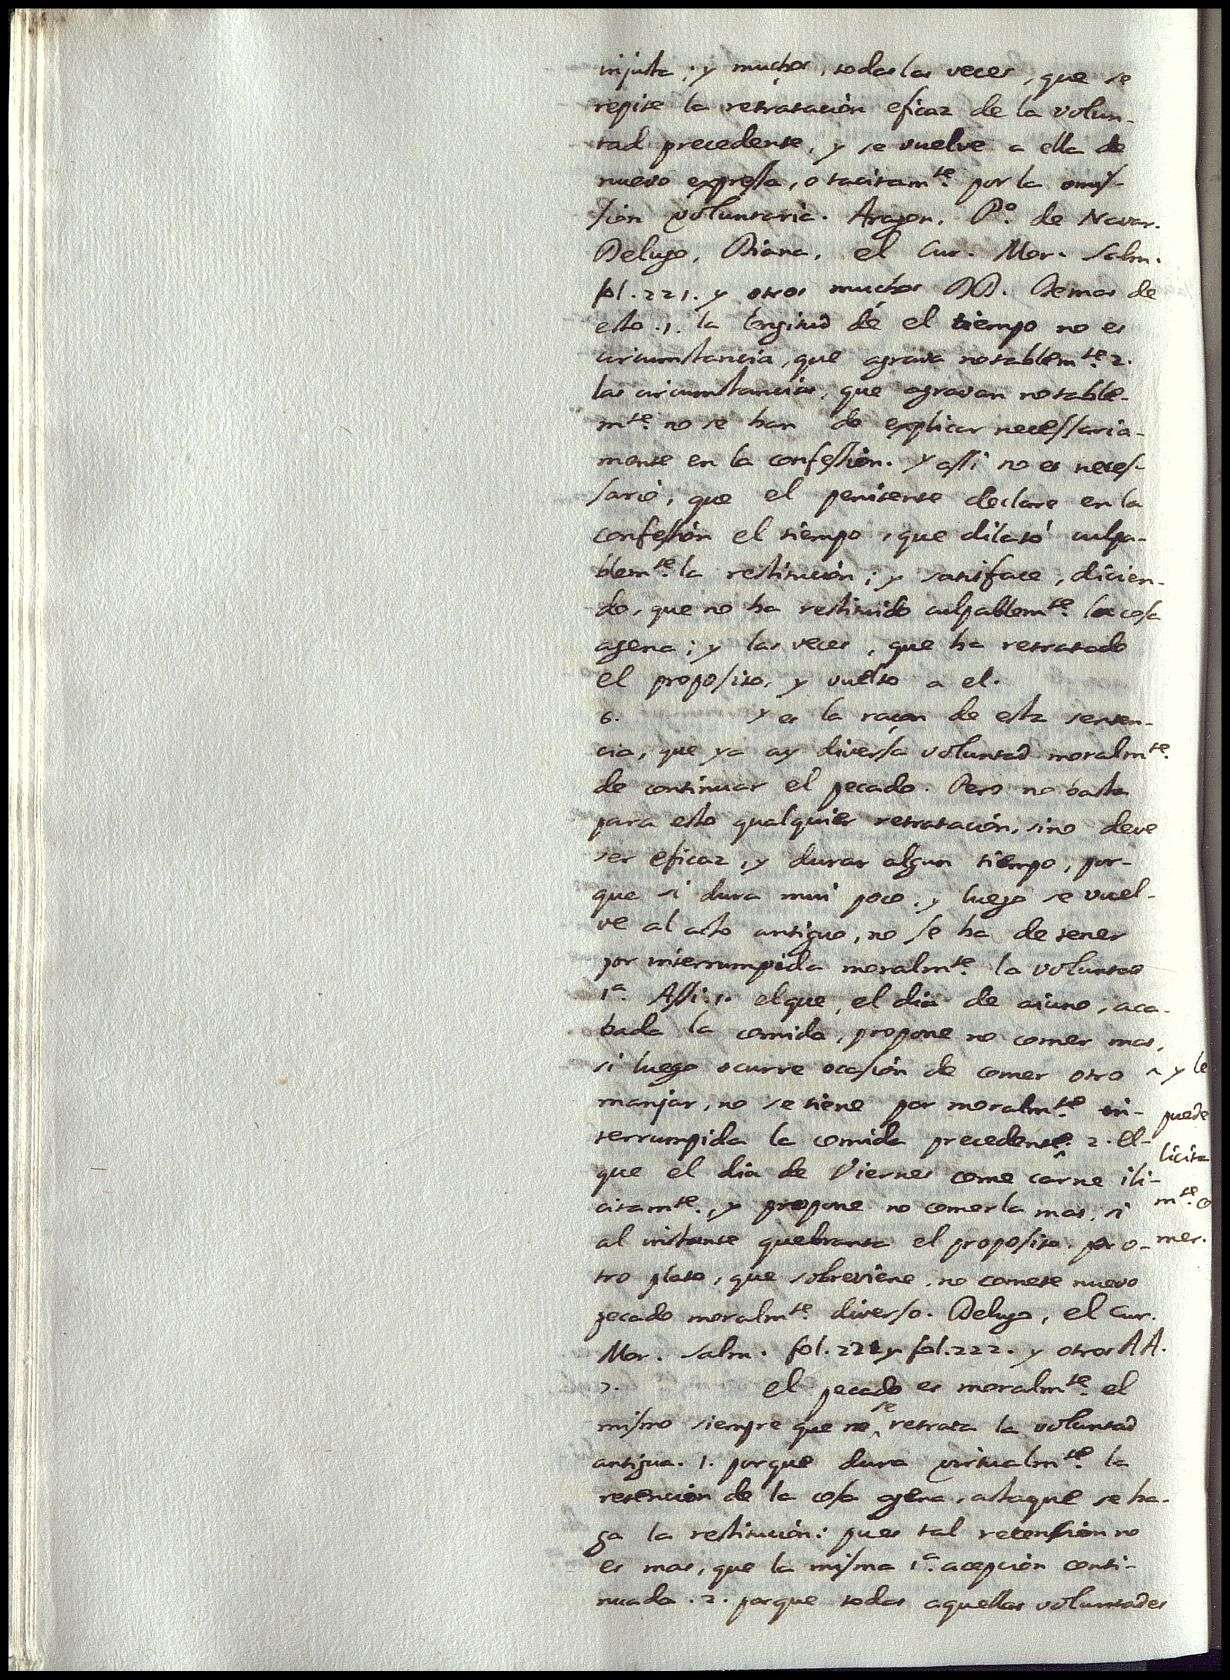 injusta; y muchos, todas las veces, que se
repite la retratación eficaz de la volun-
tad precedente, y se vuelve a ella de
nuevo expressa, o tacitamte. por la omis-
sion voluntaria. Aragon, Po. de Navar.
Delugo, Diana, el Cur. Mor. Salm.
fol. 221. y otros muchos DD. Demas de
esto .1. la longitud de el tiempo no es
circumstancia, que agrava notablemte. 2.
las circumstancias, que agravan notable-
mte. no se han de explicar necessaria-
mente en la confession. y assi no es neces-
sario, que el penitente declare en la
confession el tiempo, que dilató culpa-
blemte. la restitución; y satisface, dicien-
do, que no ha restituido culpablemte. la cosa
agena; y las veces, que ha retratado
el proposito, y vuelto a el.
6. y es la raçon de esta senten-
cia, que ya ay diversa voluntad moralmte.
de continuar el pecado. Pero no basta
para esto qualquier retratación, sino deve
ser eficaz, y durar algun tiempo, por-
que si dura mui poco, y luego se vuel-
ve al acto antiguo, no se ha de tener
por interrumpida moralmte. la voluntad
1a. Assi .1. el que, el dia de aiuno, aca-
bada la comida, propone no comer mas,
si luego ocurre ocasión de comer otro ^ y le
manjar, no se tiene por moralmte. in- puede
terrumpida la comida precedente^. 2. el- licita
que el dia de Viernes come carne ili- mte. co
citamte., y propone no comerla mas, si mer.
al instante quebranta el proposito por o-
tro plato, que sobreviene, no comete nuevo
pecado moralmte. diverso. Delugo, el Cur.
Mor. Salm. fol. 221 y fol. 222. y otros AA.
7. el pecado es moralmte. el
mismo siempre que no ^se retrata la voluntad
antigua. 1. porque dura virtualmte. la
retención de la cosa agena, astaque se ha-
ga la restitución: pues tal retension no
es mas, que la misma 1a. acepción conti-
nuada. 2. porque todas aquellas voluntades